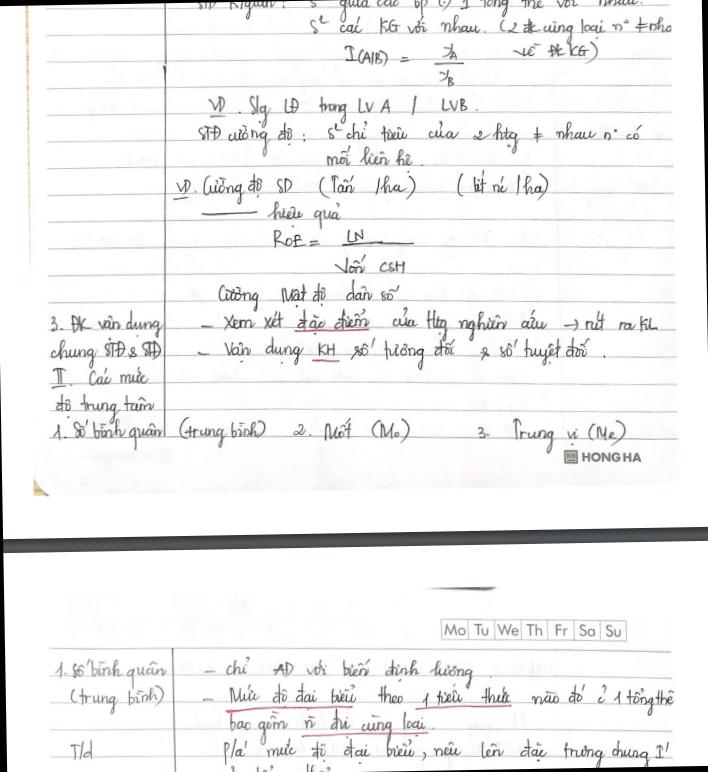 STĐ K/gian : s² giữa các bp (.) 1 tổng thể với nhau.
s² các KG với nhau. (2 ht cùng loại n° ≠ nhau
I(A/B) = yA / yB về ĐK KG)
VD. Slg LĐ trong LV A / LVB.
STĐ cường độ : s² chỉ tiêu của 2 htg ≠ nhau n° có
mối liên hệ.
VD. Cường độ SD (Tấn /ha) (lít nc /ha)
hiệu quả
ROE = LN
Vốn CSH
Cường Mật độ dân số
3. ĐK vận dụng - Xem xét đặc điểm của Htg nghiên cứu → rút ra KL
chung STĐ & STĐ - Vận dụng KH số tương đối & số tuyệt đối.
II. Các mức
độ trung tâm
1. Số bình quân (trung bình) 2. Mốt (Mo) 3. Trung vị (Me)
HONG HA
Mo Tu We Th Fr Sa Su
1. Số bình quân - chỉ AD với biến định lượng
(trung bình) - Mức độ đại biểu theo 1 tiêu thức nào đó ở 1 tổng thể
bao gồm n̄ đvi cùng loại.
T/d P/á mức độ đại biểu, nêu lên đặc trưng chung I'